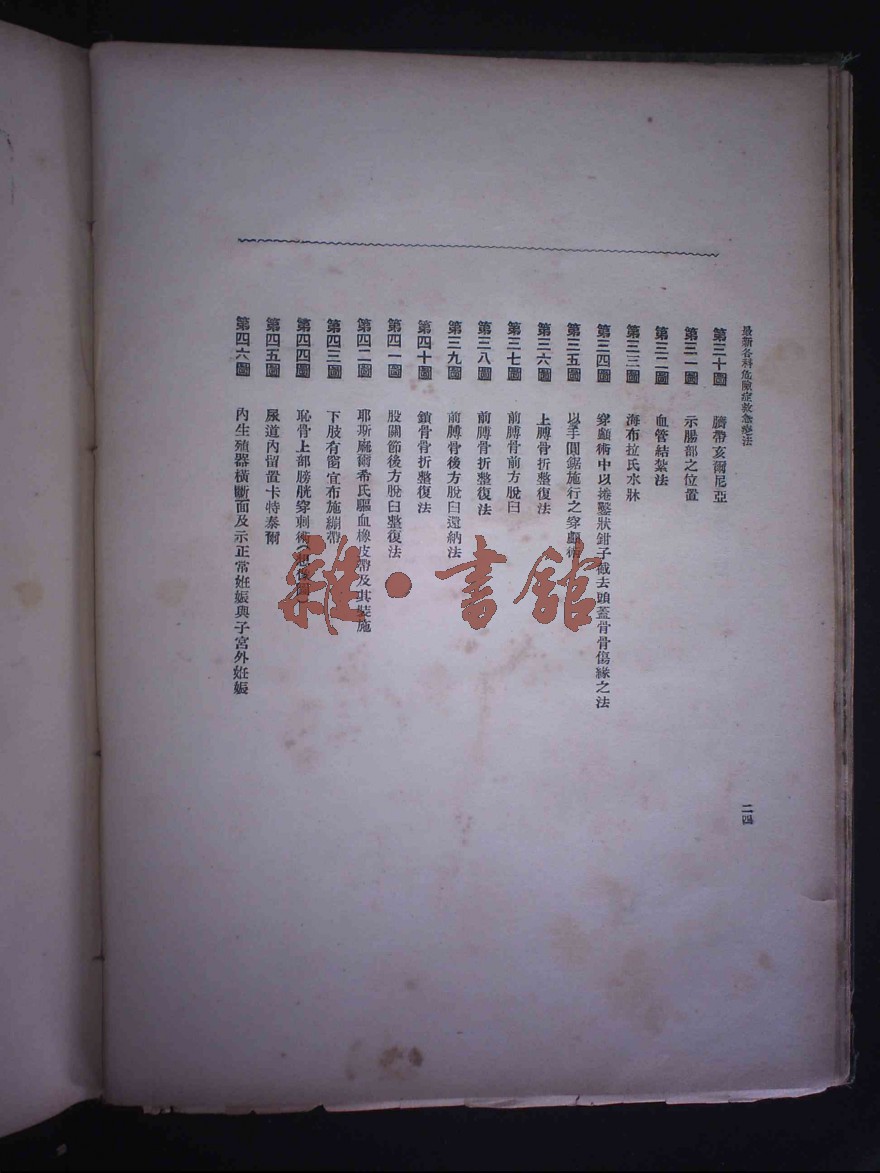 最新各科危險症救急療法
第三十圖 臍帶亥爾尼亞
第三一圖 示腸部之位置
第三二圖 血管結紮法
第三三圖 海布拉氏水牀
第三四圖 穿顱術中以捲鑿狀鉗子截去頭蓋骨骨傷緣之法
第三五圖 以手圓鋸施行之穿顱術
第三六圖 上膊骨折整復法
第三七圖 前膊骨前方脫臼
第三八圖 前膊骨折整復法
第三九圖 前膊骨後方脫臼還納法
第四十圖 鎖骨骨折整復法
第四一圖 股關節後方脫臼整復法
第四二圖 耶斯麻爾希氏驅血橡皮帶及其裝施
第四三圖 下肢有窗宜布施繃帶
第四四圖 恥骨上部膀胱穿刺術
第四五圖 尿道內留置卡特泰爾
第四六圖 內生殖器橫斷面及示正常姙娠與子宮外姙娠
二四
雜·書館